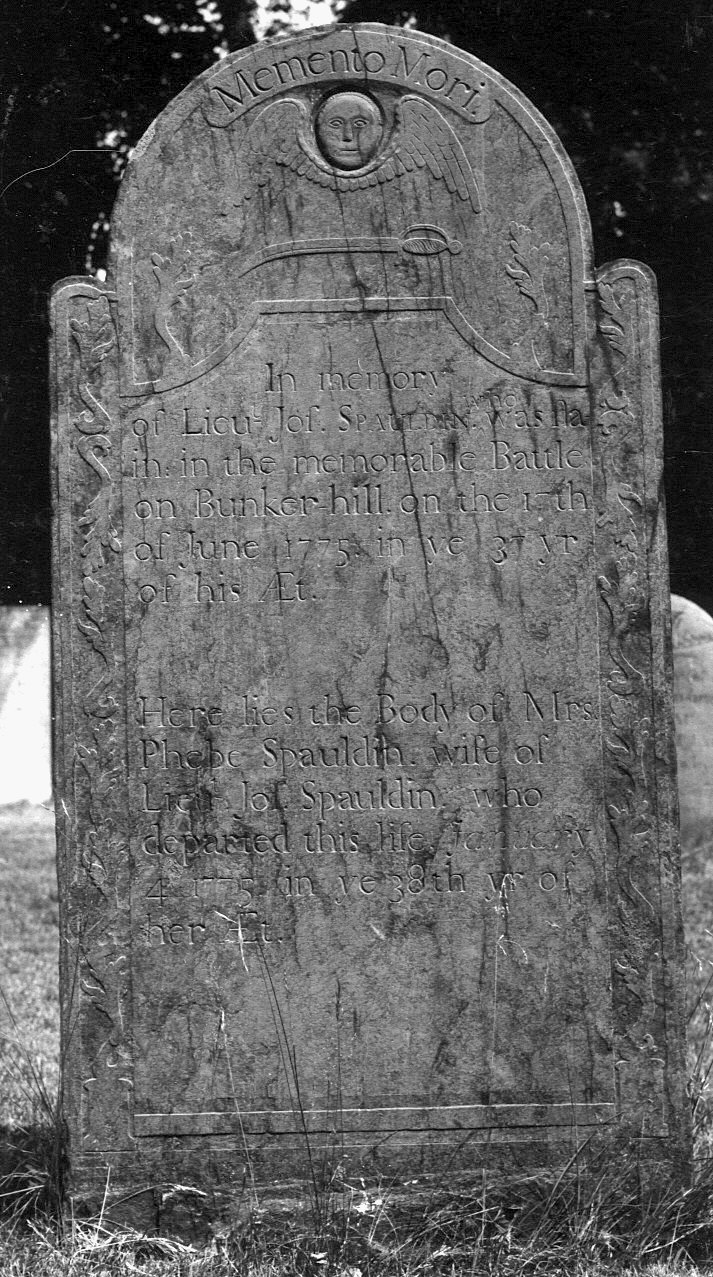 Memento Mori.
In memory
WHO
of Lieut. Joſ. SPAULDIN. was ſla
in. in the memorable Battle
on Bunker-hill. on the 17th
of June 1775. in ye 37 yr
of his Æt.
Here lies the Body of Mrs
Phebe Spauldin. wife of
Lieut. Joſ. Spauldin. who
departed this life. January
4 1775. in ye 38th yr of
her Æt.